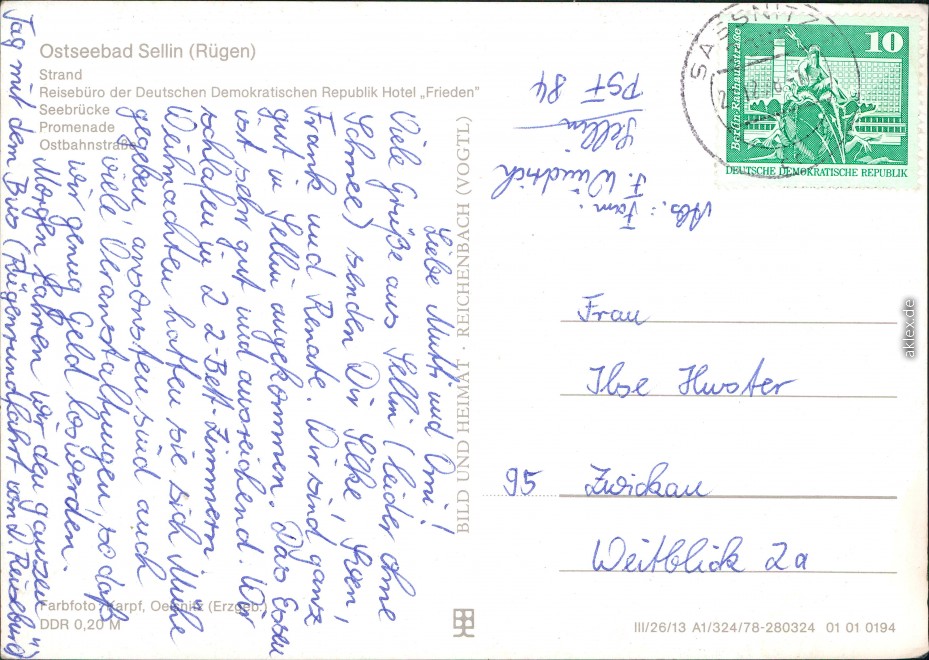 Ostseebad Sellin (Rügen)
Strand
Reisebüro der Deutschen Demokratischen Republik Hotel „Frieden"
Seebrücke
Promenade
Ostbahnstraße
Liebe Mutti und Omi!
Viele Grüße aus Sellin (leider ohne
Schnee) senden Dir Silke, Sven,
Frank und Renate. Wir sind ganz
gut in Sellin angekommen. Das Essen
ist sehr gut und ausreichend. Wir
schlafen in 2 2-Bett-Zimmern.
Weihnachten hatten sie sich Mühe
gegeben, ansonsten sind auch
viele Veranstaltungen, so daß
wir genug Geld loswerden.
Morgen fahren wir den ganzen
Tag mit dem Bus (Rügenrundfahrt vom D. Reisebüro)
Farbfoto: Karpf, Oelsnitz (Erzgeb.)
DDR 0,20 M
BILD UND HEIMAT · REICHENBACH (VOGTL)
Abs.: Fam.
F. Wündrich
Sellin
PSF 84
SASSNITZ
Berlin, Rathausstraße
10
DEUTSCHE DEMOKRATISCHE REPUBLIK
Frau
Ilse Huster
95 Zwickau
Weitblick 2a
III/26/13 A1/324/78-280324 01 01 0194
aklex.de